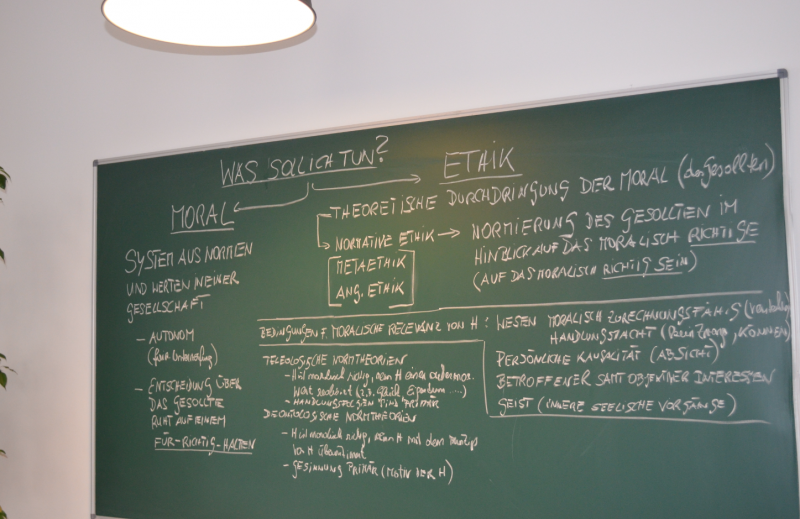 WAS SOLL ICH TUN?
MORAL
SYSTEM AUS NORMEN
UND WERTEN IN EINER
GESELLSCHAFT
- AUTONOM
- ENTSCHEIDUNG ÜBER
DAS GESOLLTE
RUHT AUF EINEM
FÜR-RICHTIG-HALTEN
ETHIK
THEORETISCHE DURCHDRINGUNG DER MORAL (des Gesollten)
NORMATIVE ETHIK → NORMIERUNG DES GESOLLTEN IM
HINBLICK AUF DAS MORALISCH RICHTIGE
(AUF DAS MORALISCH RICHTIG SEIN)
METAETHIK
ANG. ETHIK
BEDINGUNGEN F. MORALISCHE RELEVANZ VON H: WESEN MORALISCH ZURECHNUNGSFÄHIG
HANDLUNGSMACHT (kein Zwang, KÖNNEN)
PERSÖNLICHE KAUSALITÄT (ABSICHT)
BETROFFENER SAMT OBJEKTIVER INTERESSEN
GEIST (INNERE SEELISCHE VORGÄNGE)
TELEOLOGISCHE NORMTHEORIEN
- H ist moralisch richtig, wenn H einen
Wert realisiert (z.B. Glück
- HANDLUNGSFOLGEN SIND PRIMÄR
DEONTOLOGISCHE NORMTHEORIEN
- H ist moralisch richtig, wenn H mit dem
von H übereinstimmt
- GESINNUNG PRIMÄR (MOTIV DER H)